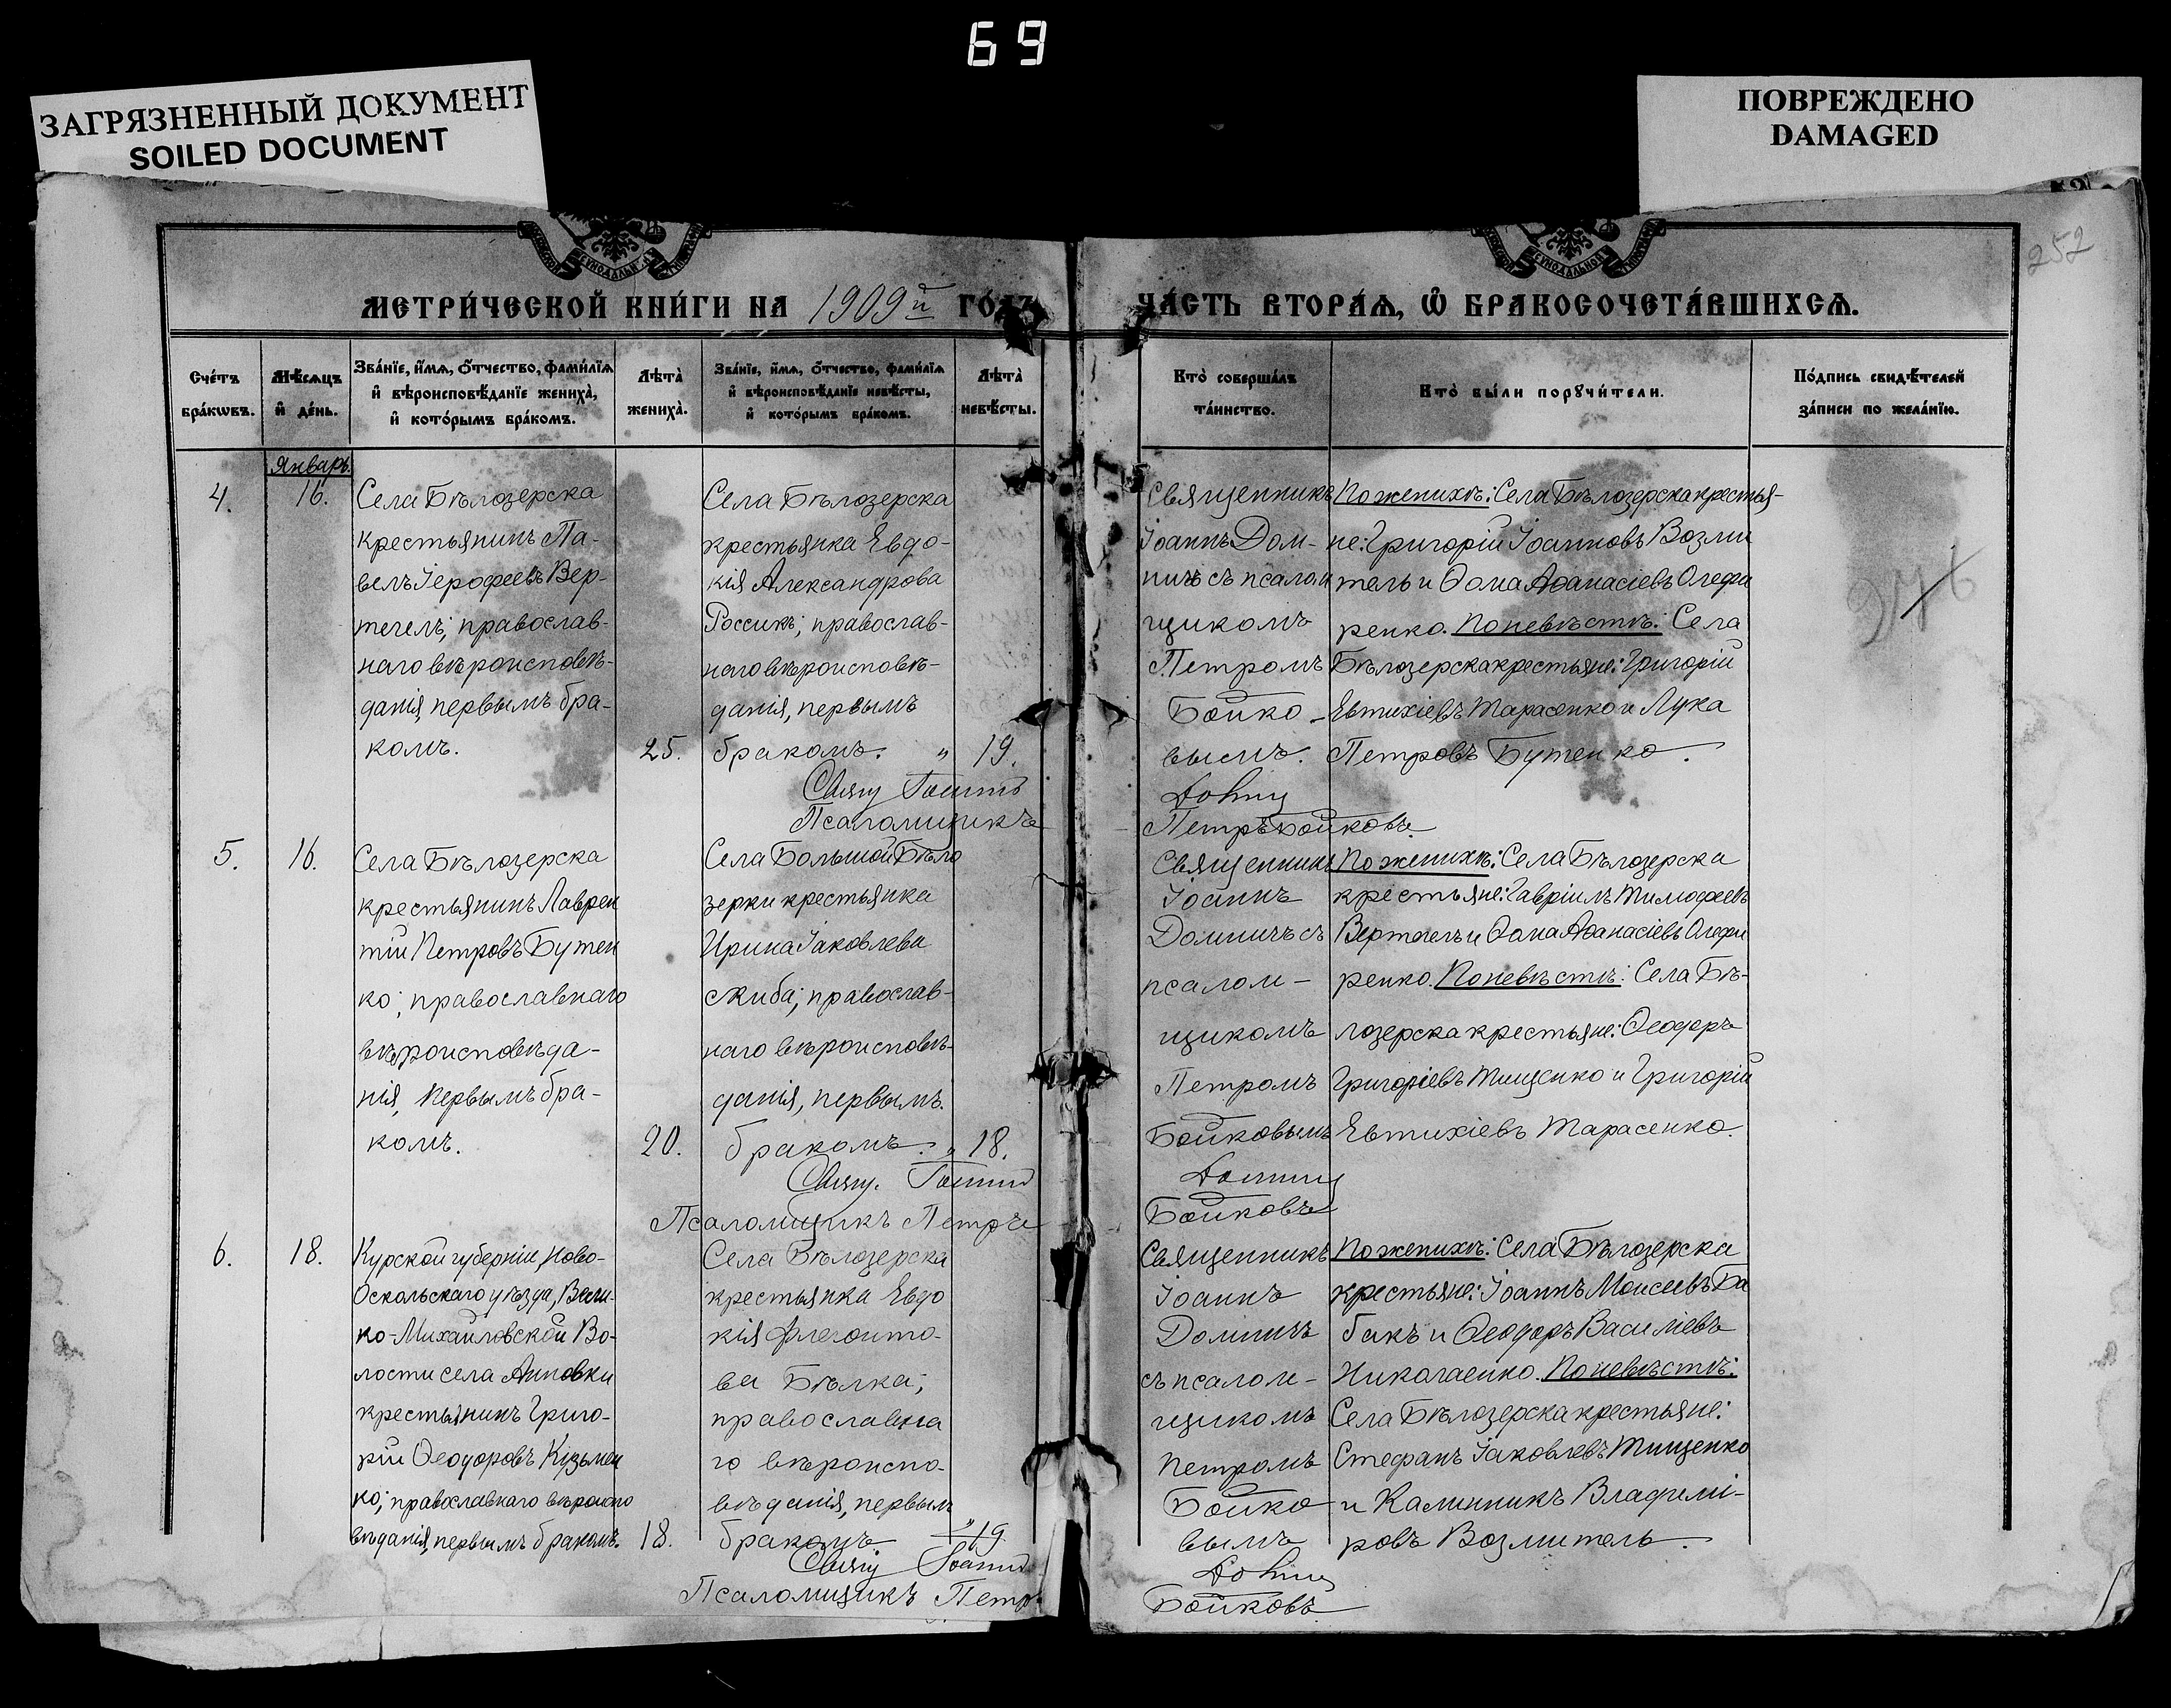 69
ЗАГРЯЗНЕННЫЙ ДОКУМЕНТ
SOILED DOCUMENT
ПОВРЕЖДЕНО
DAMAGED
252
МЕТРИ́ЧЕСКОЙ КНИ́ГИ НА 1909й ГО́ДЪ
ЧА́СТЬ ВТОРА́Я, Ѡ БРАКОСОЧЕТА́ВШИХСЯ.
Сче́тъ бра́ковъ.
Мѣ́сяцъ и де́нь.
Зва́нїе, и́мя, о́тчество, фами́лїя и вѣроисповѣ́данїе жениха̀, и кото́рымъ бра́комъ.
Лѣта̀ жениха̀.
Зва́нїе, и́мя, о́тчество, фами́лїя и вѣроисповѣ́данїе невѣ́сты, и кото́рымъ бра́комъ.
Лѣта̀ невѣ́сты.
Кто̀ соверша́лъ та́инство.
Кто̀ бы́ли порꙋчи́тели.
По́дпись свидѣ́телей за́писи по жела́нїю.
Январь.
4.
16.
Села Бѣлозерска
крестьянинъ Па-
велъ Іерофеевъ Вер-
тегелъ; православ-
наго вѣроисповѣ-
данія, первымъ бра-
комъ.
25.
Села Бѣлозерска
крестьянка Евдо-
кія Александрова
Россикъ; православ-
наго вѣроисповѣ-
данія, первымъ
бракомъ. „
19.
Священникъ
Іоаннъ Дом-
ничъ съ псалом
щикомъ
Петромъ
Бойко-
вымъ.
По женихѣ: Села Бѣлозерска крестья-
не: Григорій Іоанновъ Возми
тель и Ѳома Аѳанасіевъ Олефи
ренко. По невѣстѣ: Села
Бѣлозерска крестьяне: Григорій
Евтихіевъ Тарасенко и Лука
Петровъ Бутенко.
Свящ Іоаннъ
Псаломщикъ
Петръ Бойковъ.
5.
16.
Села Бѣлозерска
крестьянинъ Лаврен
тій Петровъ Бутен
ко; православнаго
вѣроисповѣда-
нія, первымъ бра-
комъ.
20.
Села Большой Бѣло
зерки крестьянка
Ирина Іаковлева
Скиба; православ-
наго вѣроисповѣ-
данія, первымъ.
бракомъ. „
18.
Священникъ
Іоаннъ
Домничъ съ
псалом-
щикомъ
Петромъ
Бойковымъ
По женихѣ: Села Бѣлозерска
крестьяне: Гавріилъ Тимофеевъ
Вертегелъ и Ѳома Аѳанасіевъ Олефи
ренко. По невѣстѣ: Села Бѣ-
лозерска крестьяне: Ѳеодоръ
Григоріевъ Тищенко и Григорій
Евтихіевъ Тарасенко.
Свящ. Іоаннъ Домнич
Псаломщикъ Петръ
Бойковъ
6.
18.
Курской губерніи, Ново-
Оскольскаго уѣзда, Вели-
ко-Михайловской Во-
лости села
крестьянинъ Григо-
рій Ѳеодоровъ Кузьмен
ко; православнаго вѣроиспо
вѣданія, первымъ бракомъ.
18.
Села Бѣлозерска
крестьянка Евдо
кія Флегонто-
ва Бѣлка;
православна
го вѣроиспо-
вѣданія, первым
бракомъ „
19.
Священникъ
Іоаннъ
Домничъ
съ псалом-
щикомъ
Петромъ
Бойко
вымъ
По женихѣ: Села Бѣлозерска
крестьяне: Іоаннъ Моисеевъ Ба
бакъ и Ѳеодоръ Василіевъ
Николаенко. По невѣстѣ:
Села Бѣлозерска крестьяне:
Стефанъ Іаковлевъ Тищенко
и Калинникъ Владимі-
ровъ Возмитель.
Свящ Іоаннъ
Псаломщикъ Петръ
Бойковъ